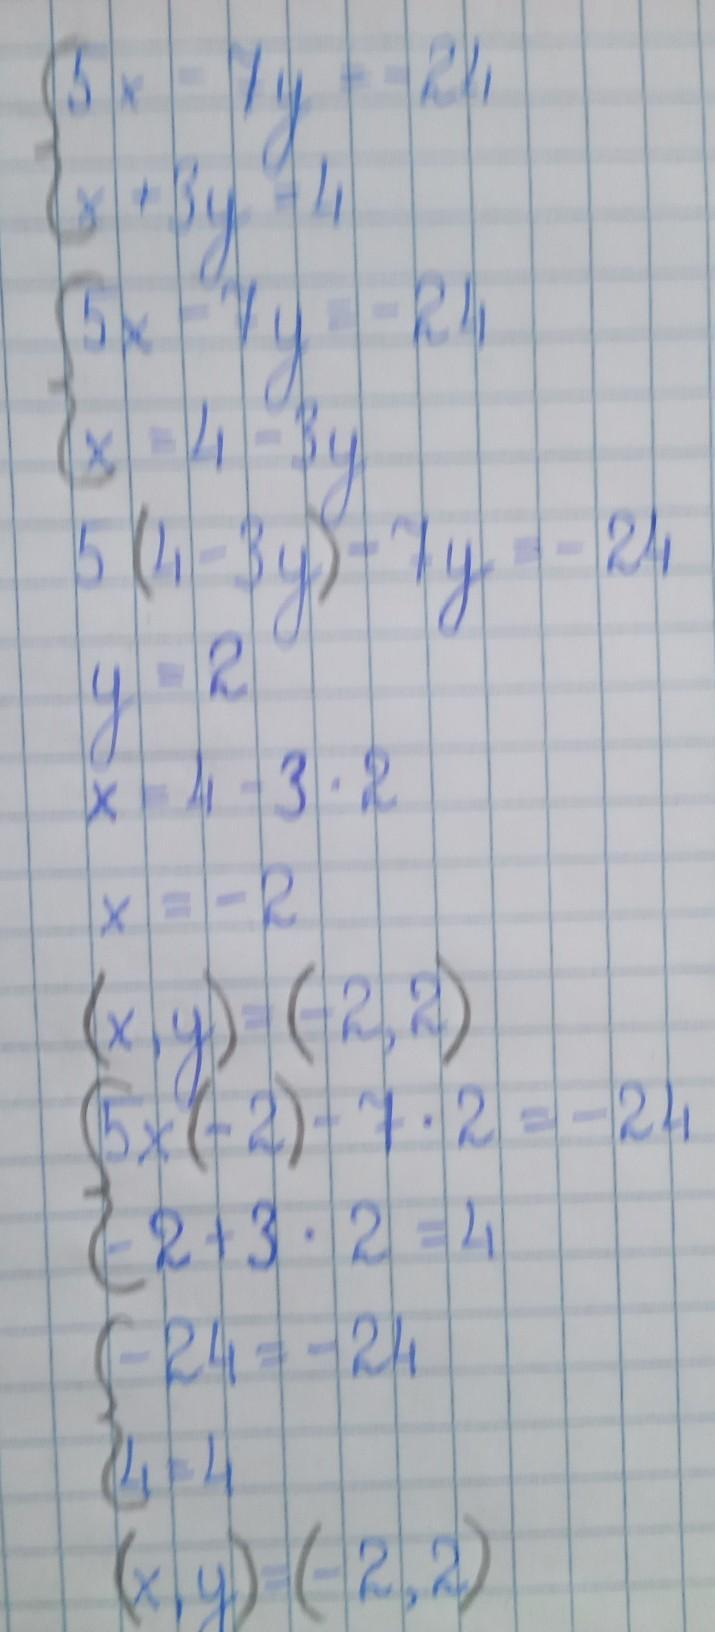 5x - 7y = -24
x + 3y = 4
5x - 7y = -24
x = 4 - 3y
5(4 - 3y) - 7y = -24
y = 2
x = 4 - 3 · 2
x = -2
(x, y) = (-2, 2)
5x(-2) - 7 · 2 = -24
-2 + 3 · 2 = 4
-24 = -24
4 = 4
(x, y) = (-2, 2)